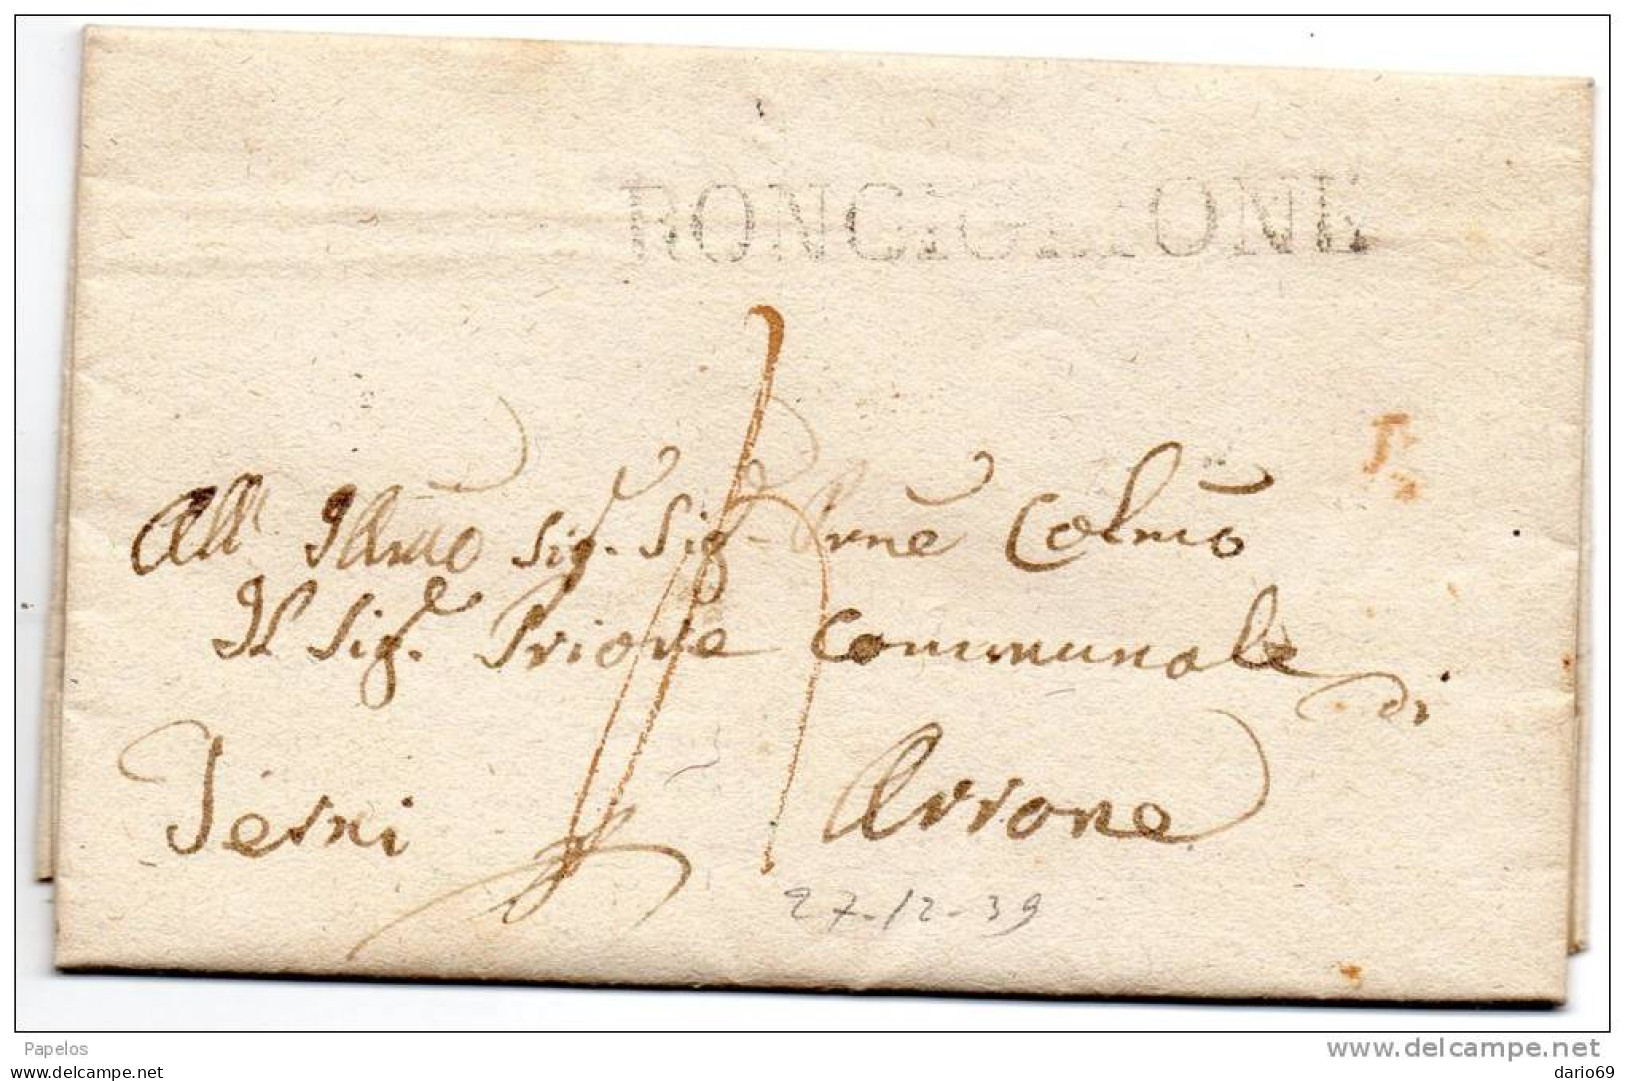 RONCIGLIONE
All' Illmõ Sig.r Sig.r Prñe Colmõ
Il Sig.r Priore Comunale
di
Terni Arrone
27-12-39
Papelos
www.delcampe.net
dario69